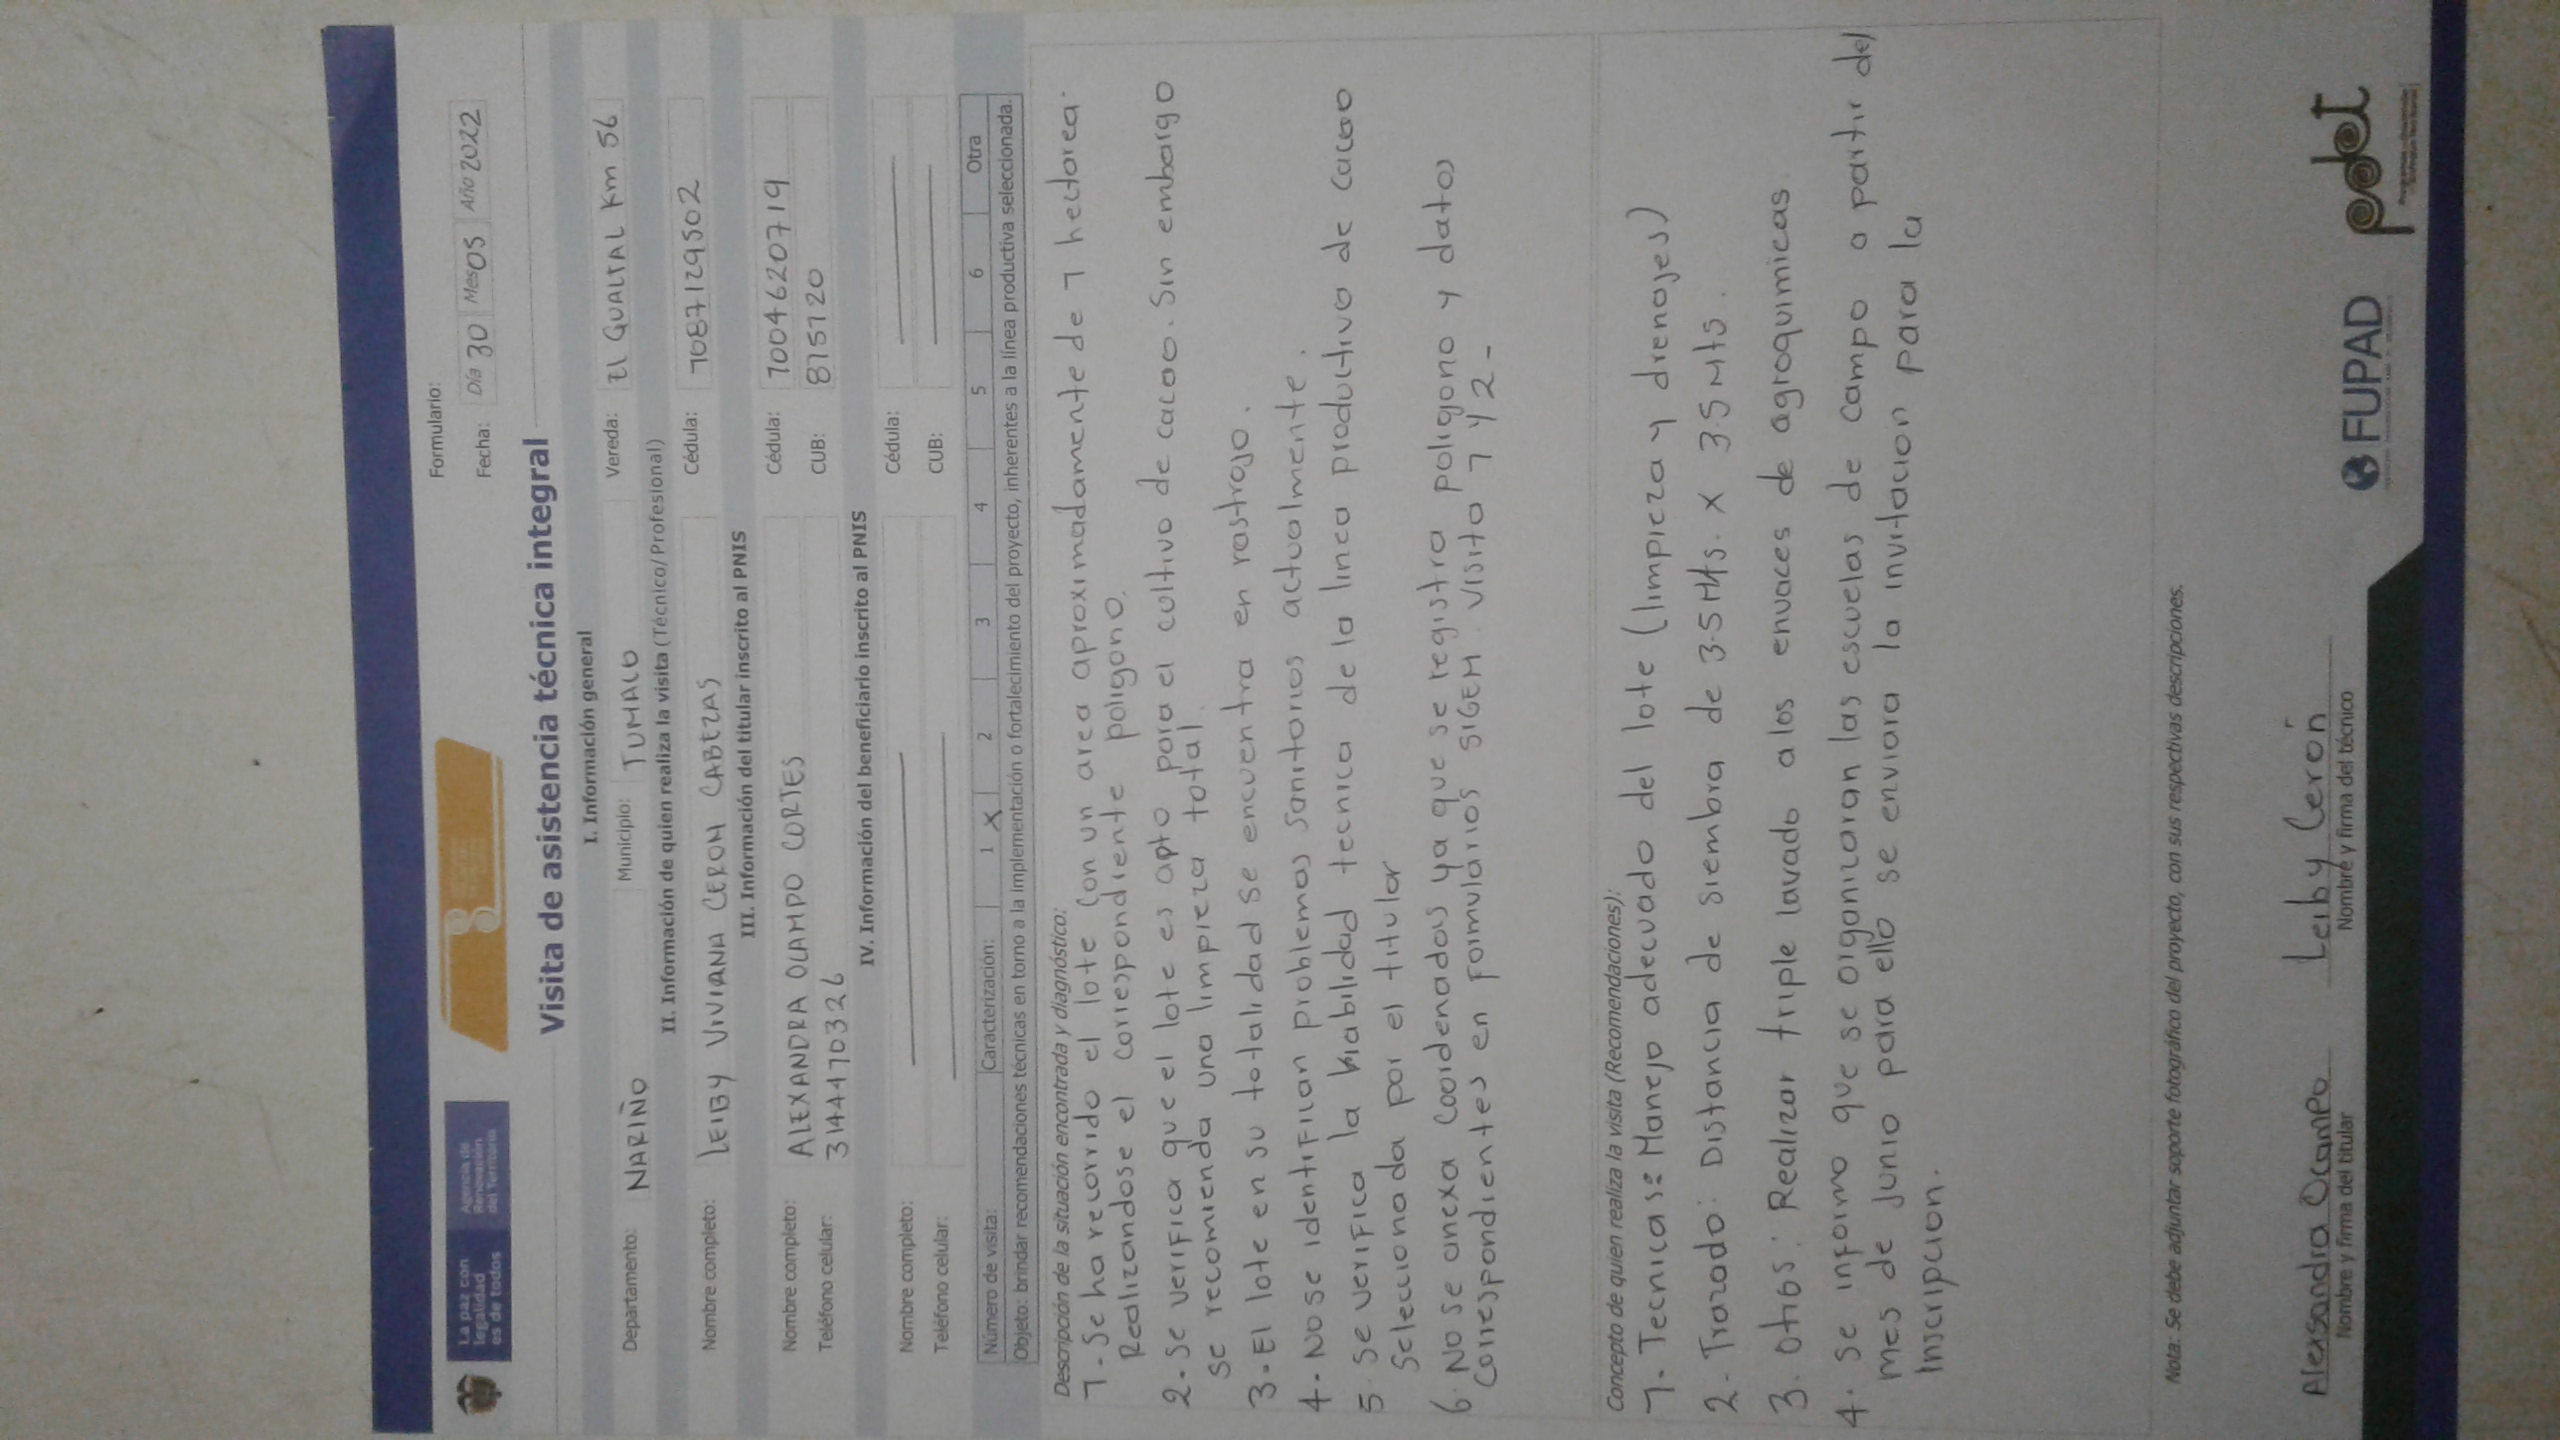 La paz con
legalidad
es de todos
Agencia de
Renovación
del Territorio
Formulario:
Fecha: Día 30 Mes 05 Año 2022
Visita de asistencia técnica integral
I. Información general
Departamento: NARIÑO Municipio: TUMACO Vereda: El GUALTAL Km 56
II. Información de quien realiza la visita (Técnico/Profesional)
Nombre completo: LEIBY VIVIANA CERON CABEZAS Cédula: 1087129502
III. Información del titular inscrito al PNIS
Nombre completo: ALEXANDRA OCAMPO CORTES Cédula: 1004620719
Teléfono celular: 3144170326 CUB: 815120
IV. Información del beneficiario inscrito al PNIS
Nombre completo: Cédula:
Teléfono celular: CUB:
Número de visita: Caracterización: 1 X 2 3 4 5 6 Otra
Objeto: brindar recomendaciones técnicas en torno a la implementación o fortalecimiento del proyecto, inherentes a la línea productiva seleccionada.
Descripción de la situación encontrada y diagnóstico:
1- Se ha recorrido el lote con un area aproximadamente de 1 hectarea.
Realizandose el correspondiente poligono.
2- se verifica que el lote es apto para el cultivo de cacao. Sin embargo
se recomienda una limpieza total.
3- El lote en su totalidad se encuentra en rastrojo.
4- No se identifican problemas sanitarios actualmente.
5. se verifica la viabilidad tecnica de la linea productiva de cacao
seleccionada por el titular
6. No se anexa coordenadas ya que se registra poligono y datos
Correspondientes en formularios SIGEM. Visita 1 y 2-
Concepto de quien realiza la visita (Recomendaciones):
1- Tecnicas: Manejo adecuado del lote (limpieza y drenajes)
2- Trazado: Distancia de siembra de 3.5 Mts. x 3.5 Mts.
3. Otros: Realizar triple lavado a los envaces de agroquimicos
4. se informa que se organizaran las escuelas de campo a partir del
mes de Junio para ello se enviara la invitacion para la
Inscripcion.
Nota: Se debe adjuntar soporte fotográfico del proyecto, con sus respectivas descripciones.
Alexsandra Ocampo
Nombre y firma del titular
Leiby Cerón
Nombre y firma del técnico
FUPAD
pdet